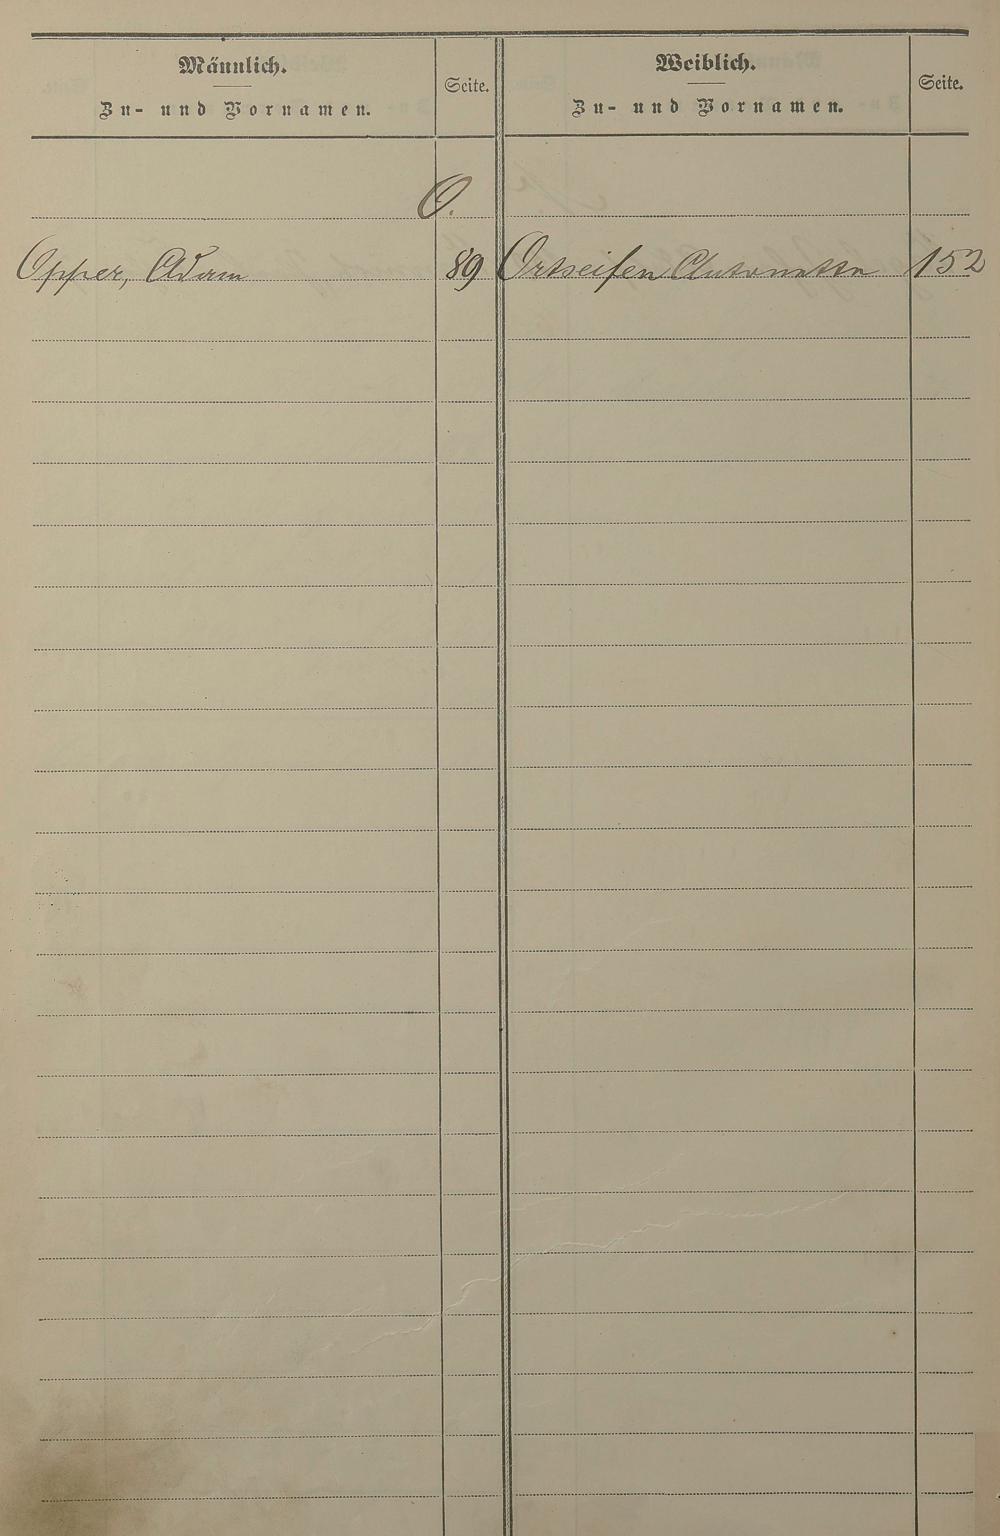 Männlich.
Zu- und Vornamen.
Seite.
Weiblich.
Zu- und Vornamen.
Seite.
O.
Opper, Adam 89
Ortseifen Antonette 152